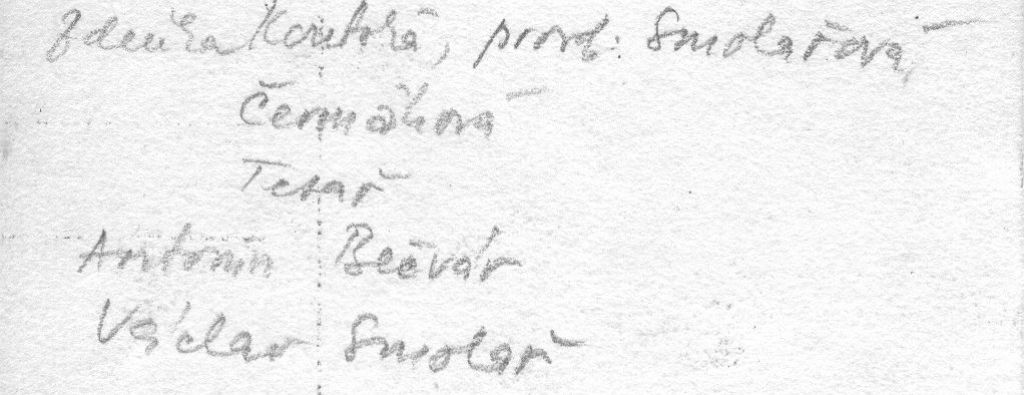 Zdeňka Koutská, provd. Smolařová,
Čermáková
Tesař
Antonín Bečvár
Václav Smolař